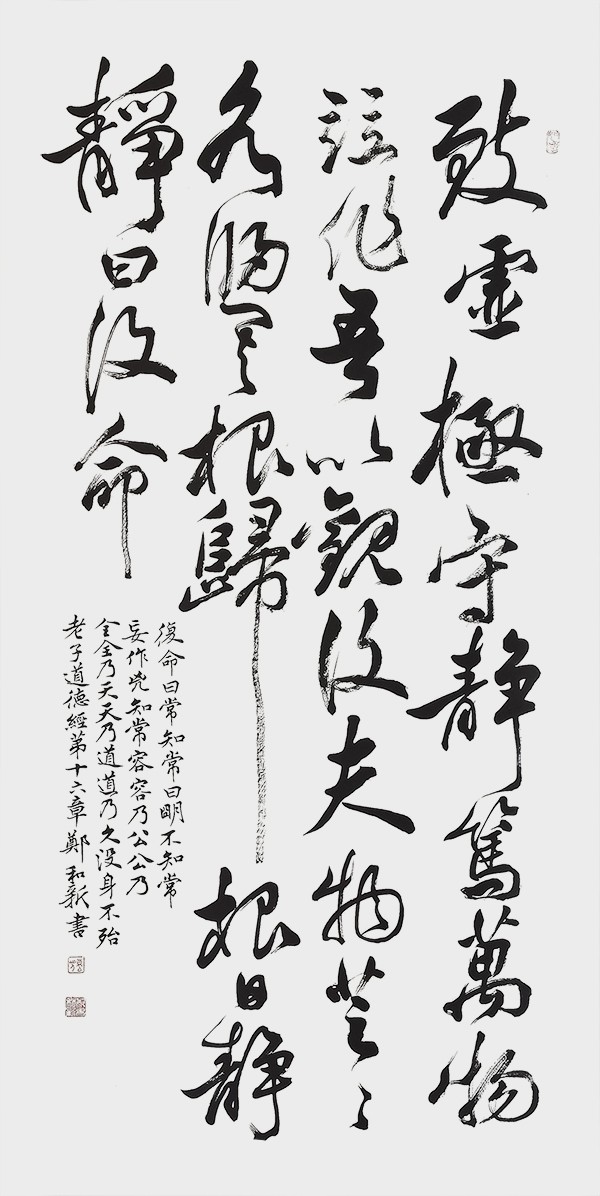 致虛極守静篤萬物
並作吾以觀復夫物芸〻
各歸其根歸根曰静
靜曰復命
復命曰常知常曰眀不知常
妄作兇知常容容乃公公乃
全全乃天天乃道道乃久没身不殆
老子道德經第十六章鄭和新書